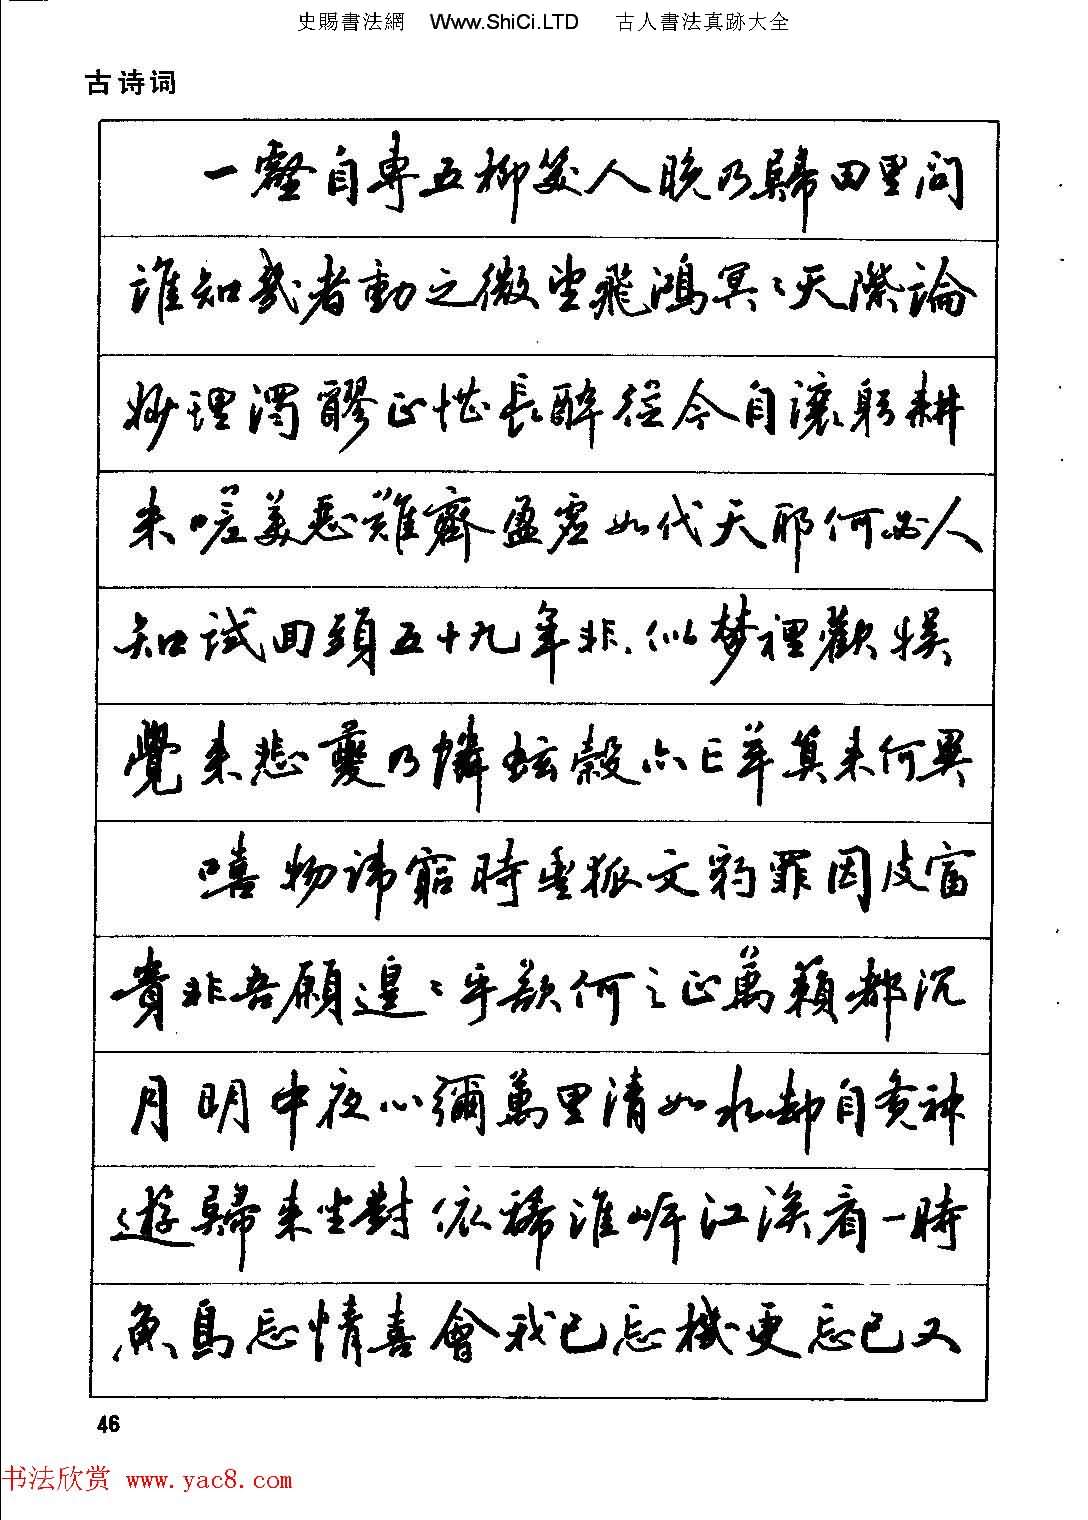 史賜書法網 Www.ShiCi.LTD 古人書法真跡大全
古诗词
一壑自専五柳笑人晚乃歸田里问
谁知幾者動之微望飛鴻冥〻天際論
妙理濁醪正惟長醉從今自讓躬耕
来嗟美恶難齊盈虚如代天耶何必人
知试回頭五十九年非似梦裡歡娱
覺来悲夔乃憐蚿榖亦亡羊算来何異
嘻物讳窮時豐狐文豹罪因皮富
貴非吾願遑〻乎欲何之正萬籟都沉
月明中夜心彌萬里清如水却自覺神
遊歸来坐對依稀淮岸江涘看一時
魚鳥忘情喜會我已忘機更忘己又
46
书法欣赏 www.yac8.com